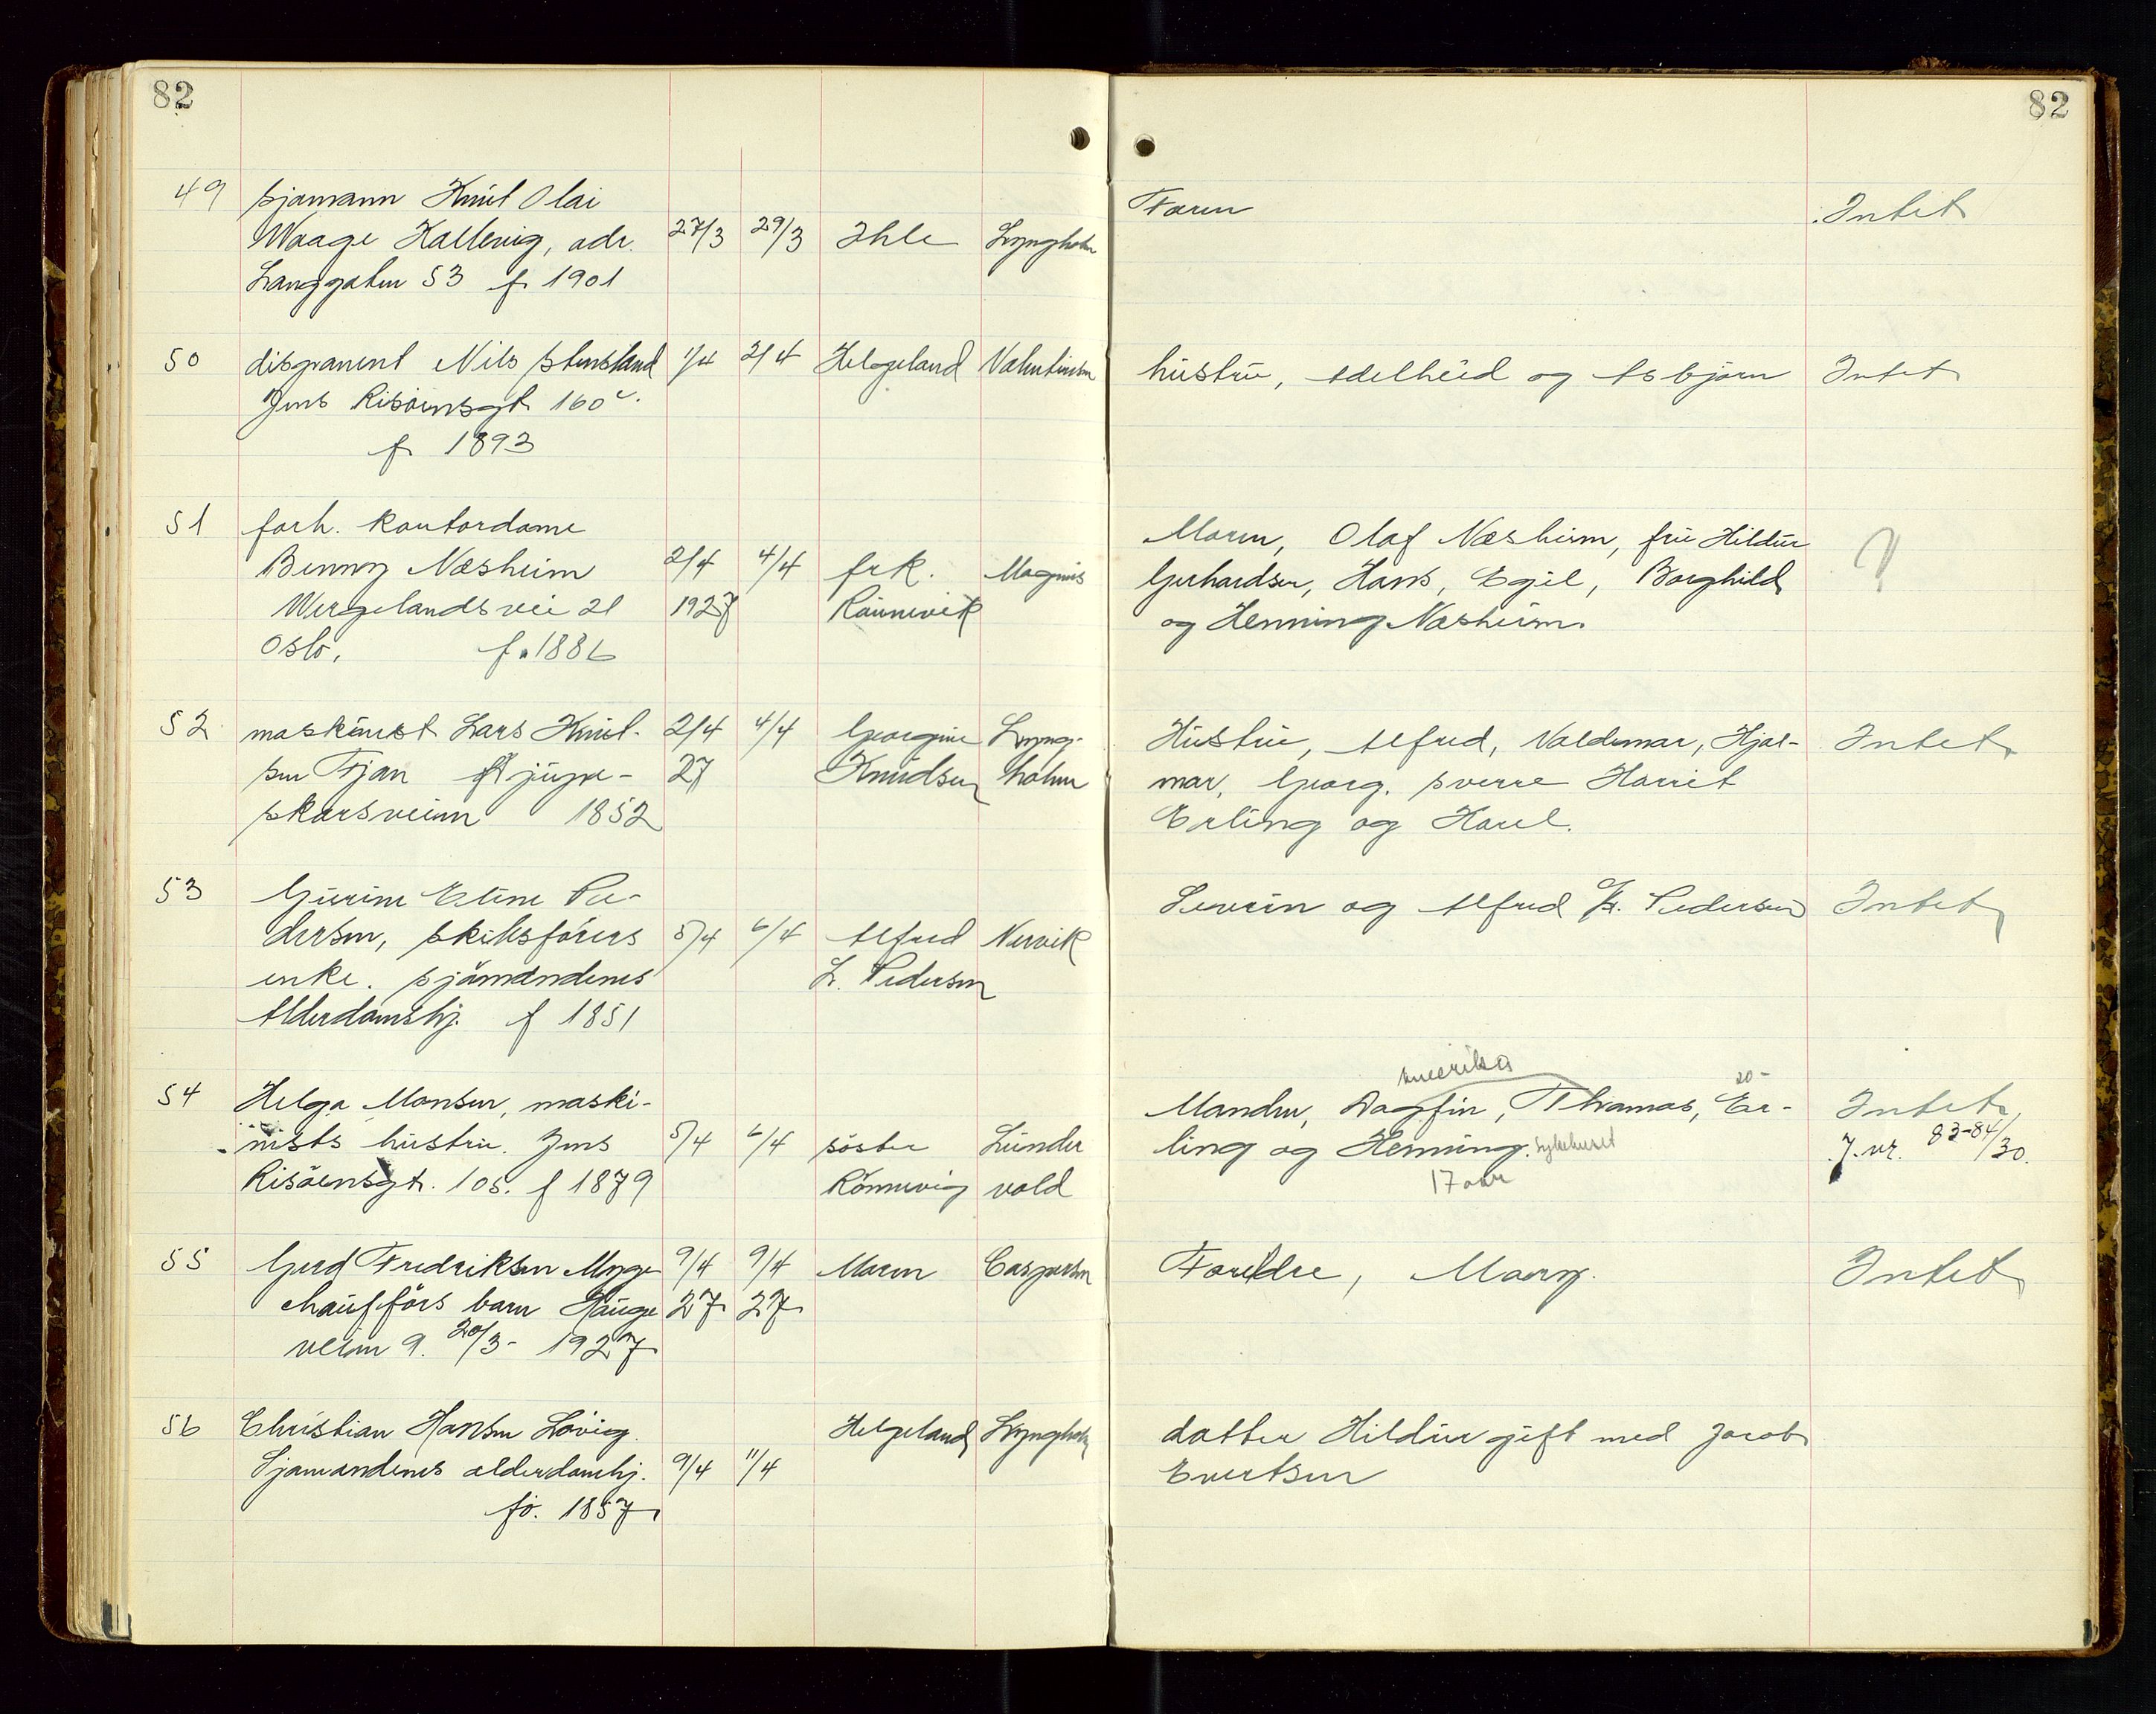 82
82
49 sjømann Knut Olai
Waage Kallevig, adr. 27/3 29/3 Ihle Lyngholm Faren Intet
Langgaten 53 f. 1901
50 disponent Nils Stensland 1/4 2/4 Helgeland Valentinsen hustru, Adelheid og Asbjørn Intet
Jens Risøensgt. 160c.
f. 1893
51 forh. kontordame
Benny Næsheim 2/4 4/4 frk. Magnus Moren, Olaf Næsheim, fru Hildur ?
Wergelandsvei 21 1927 Rønnevik Gerhardsen, Hans, Egil, Borghild
Oslo, f. 1886 og Henning Næsheim.
52 maskinist Lars Knut- 2/4 4/4 Georgine Lyng- Hustru, Alfred, Valdemar, Hjal- Intet
sen Fjon Djupe- 27 Knudsen holm mar, Georg. Sverre Harriet
skarsveien 1852 Erling og Harel.
53 Gurine Eline Pe-
dersen, skibsførers 5/4 6/4 Alfred Nervik Severin og Alfred L. Pedersen Intet
enke. Sjømændenes L. Pedersen
Alderdomshj. f 1851
Amerika
20-
54 Helga Monsen, maski- Manden, Dagfin, Thomas, Er- Intet,
nists hustru. Jens 5/4 6/4 søster Lunde ling og Henning. Sykehuset J. nr. 83-84/30.
Risøensgt. 105. f 1879 Rønnevig vold 17 aar
55 Gerd Fredriksen Myge 9/4 9/4 Moren Caspersen Foreldre, Mary. Intet
chaufførs barn Hauge 27 27
veien 9. 20/3- 1927
56 Christian Hansen Løvig. Helgeland Lyngholm datter Hildur gift med Jacob
Sjømandenes alderdomshj. 9/4 11/4 Evertsen
fø. 1857